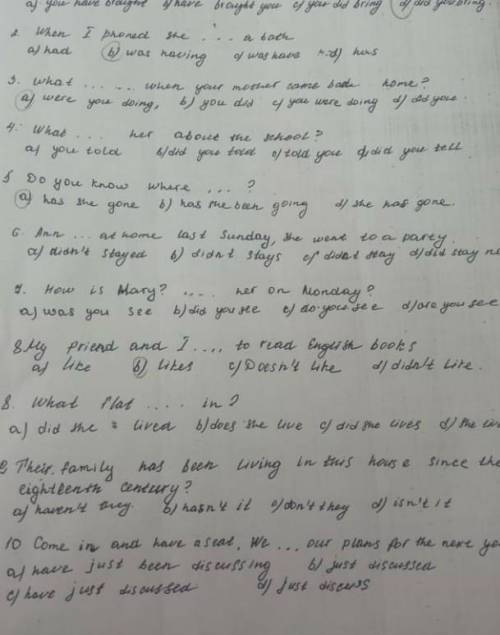 a) you have brought b) have brought you c) you did bring d) did you bring.
2. When I phoned she ... a bath
a) had b) was having c) was have d) has
3. What ... ... when your mother came back home?
a) were you doing, b) you did c) you were doing d) did you
4. What ... her about the school?
a) you told b) did you told c) told you d) did you tell
5 Do you know where ... ?
a) has she gone b) has she been going d) she has gone.
6. Ann ... at home last Sunday, she went to a party.
a) didn't stayed b) didn't stays c) didn't stay d) did stay
7. How is Mary? .... her on Monday?
a) was you see b) did you see c) do you see d) are you see
8 My friend and I .... to read English books
a) like b) likes c) Doesn't like d) didn't like.
8. What flat .... in?
a) did she lived b) does she live c) did she lives d)
9 Their family has been living in this house since the
eighteenth century?
a) haven't they. b) hasn't it c) don't they d) isn't it
10 Come in and have a seat. We ... our plans for the next
a) have just been discussing b) just discussed
c) have just discussed d) just discuss